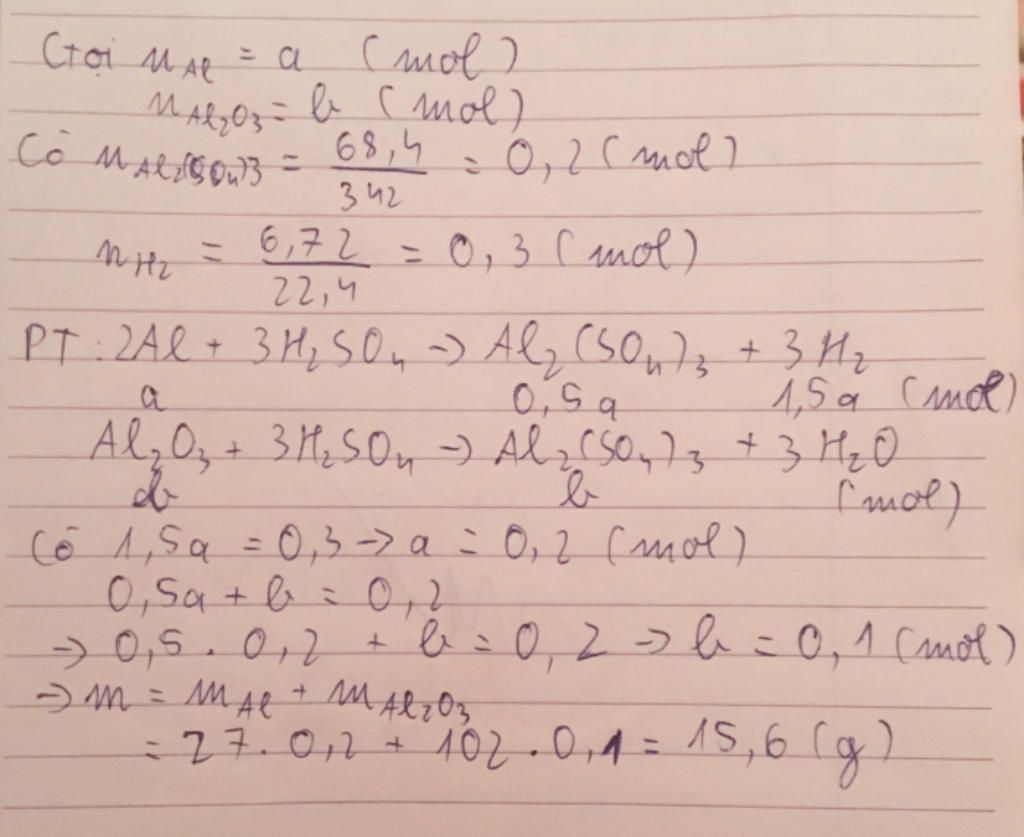 Gọi n_Al = a (mol)
n_Al₂O₃ = b (mol)
Có n_Al₂(SO₄)₃ = 68,4/342 = 0,2 (mol)
n_H₂ = 6,72/22,4 = 0,3 (mol)
PT: 2Al + 3H₂SO₄ → Al₂(SO₄)₃ + 3H₂
a 0,5a 1,5a (mol)
Al₂O₃ + 3H₂SO₄ → Al₂(SO₄)₃ + 3H₂O
b b (mol)
Có 1,5a = 0,3 → a = 0,2 (mol)
0,5a + b = 0,2
→ 0,5 . 0,2 + b = 0,2 → b = 0,1 (mol)
→ m = m_Al + m_Al₂O₃
= 27 . 0,2 + 102 . 0,1 = 15,6 (g)